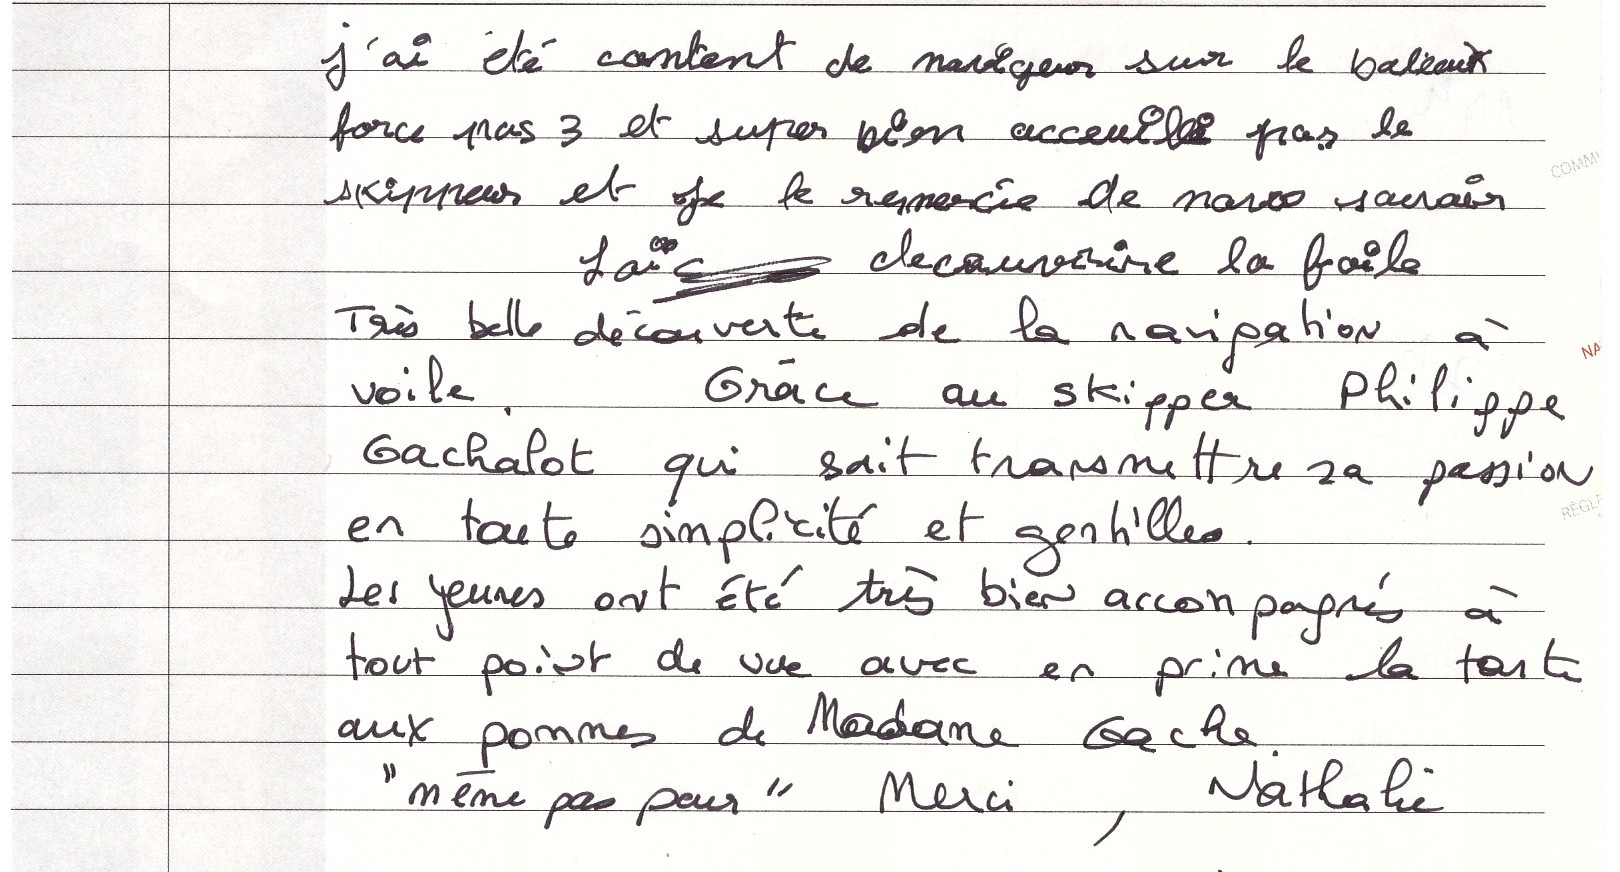 j'ai été content de navigeur sur le bateaux
force pas 3 et super bien acceuilli pas le
skippeur et je le remercie de navoo savoir
Loïc decouvrire la foile
Très belle découverte de la navigation à
voile. Grâce au skipper Philippe
Gachalot qui sait transmettre sa passion
en toute simplicité et gentilles.
Les jeunes ont été très bien accompagnés à
tout point de vue avec en prime la tarte
aux pommes de Madame Gache.
"même pas peur" Merci, Nathalie
COMMU
NA
RÉGLE